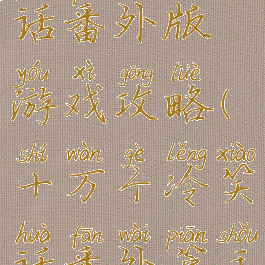 话番外版
yóu xì gōng lüè
游戏攻略(
shí wàn gè lěng xiào
十万个冷笑
huà fān wài piān shǒu
话番外篇手